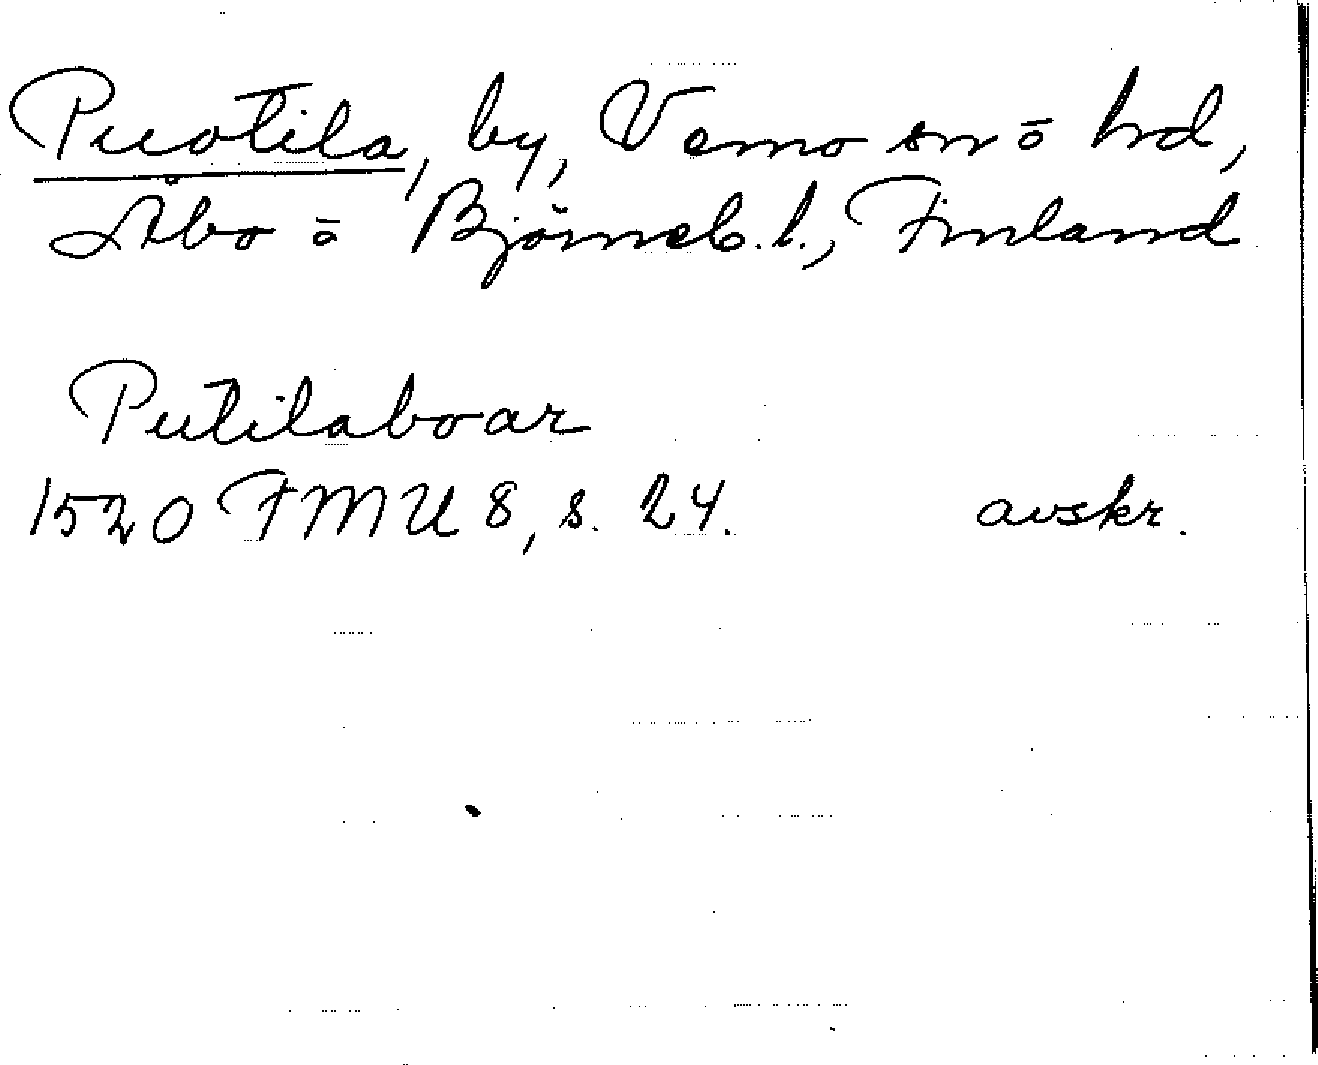 Puotila, by, Vemo sn o hd,
Åbo o Björneb. l., Finland
Putilaboar
1520 FMU 8, s. 24. avskr.